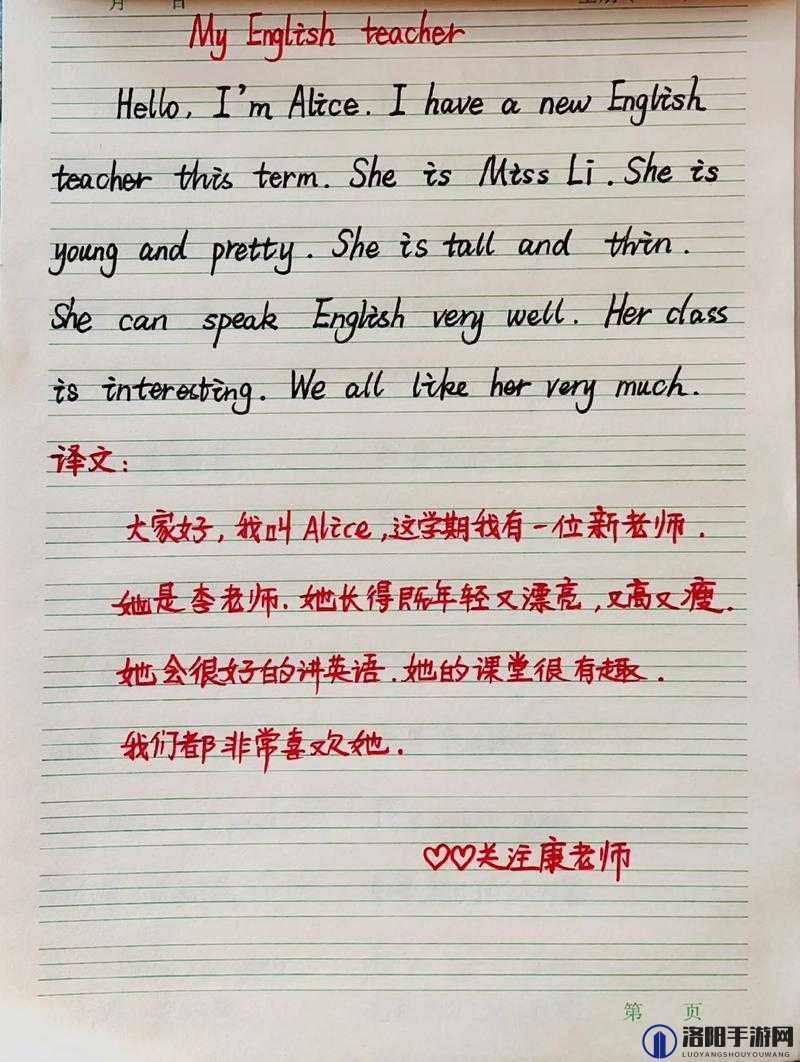 月 日
My English teacher
Hello, I'm Alice. I have a new English
teacher this term. She is Miss Li. She is
young and pretty. She is tall and thin.
She can speak English very well. Her class
is interesting. We all like her very much.
译文:
大家好,我叫Alice,这学期我有一位新老师.
她是李老师.她长得既年轻又漂亮,又高又瘦.
她会很好的讲英语.她的课堂很有趣.
我们都非常喜欢她.
♡♡关注康老师
第 页
洛阳手游网
LUOYANGSHOUYOUWANG